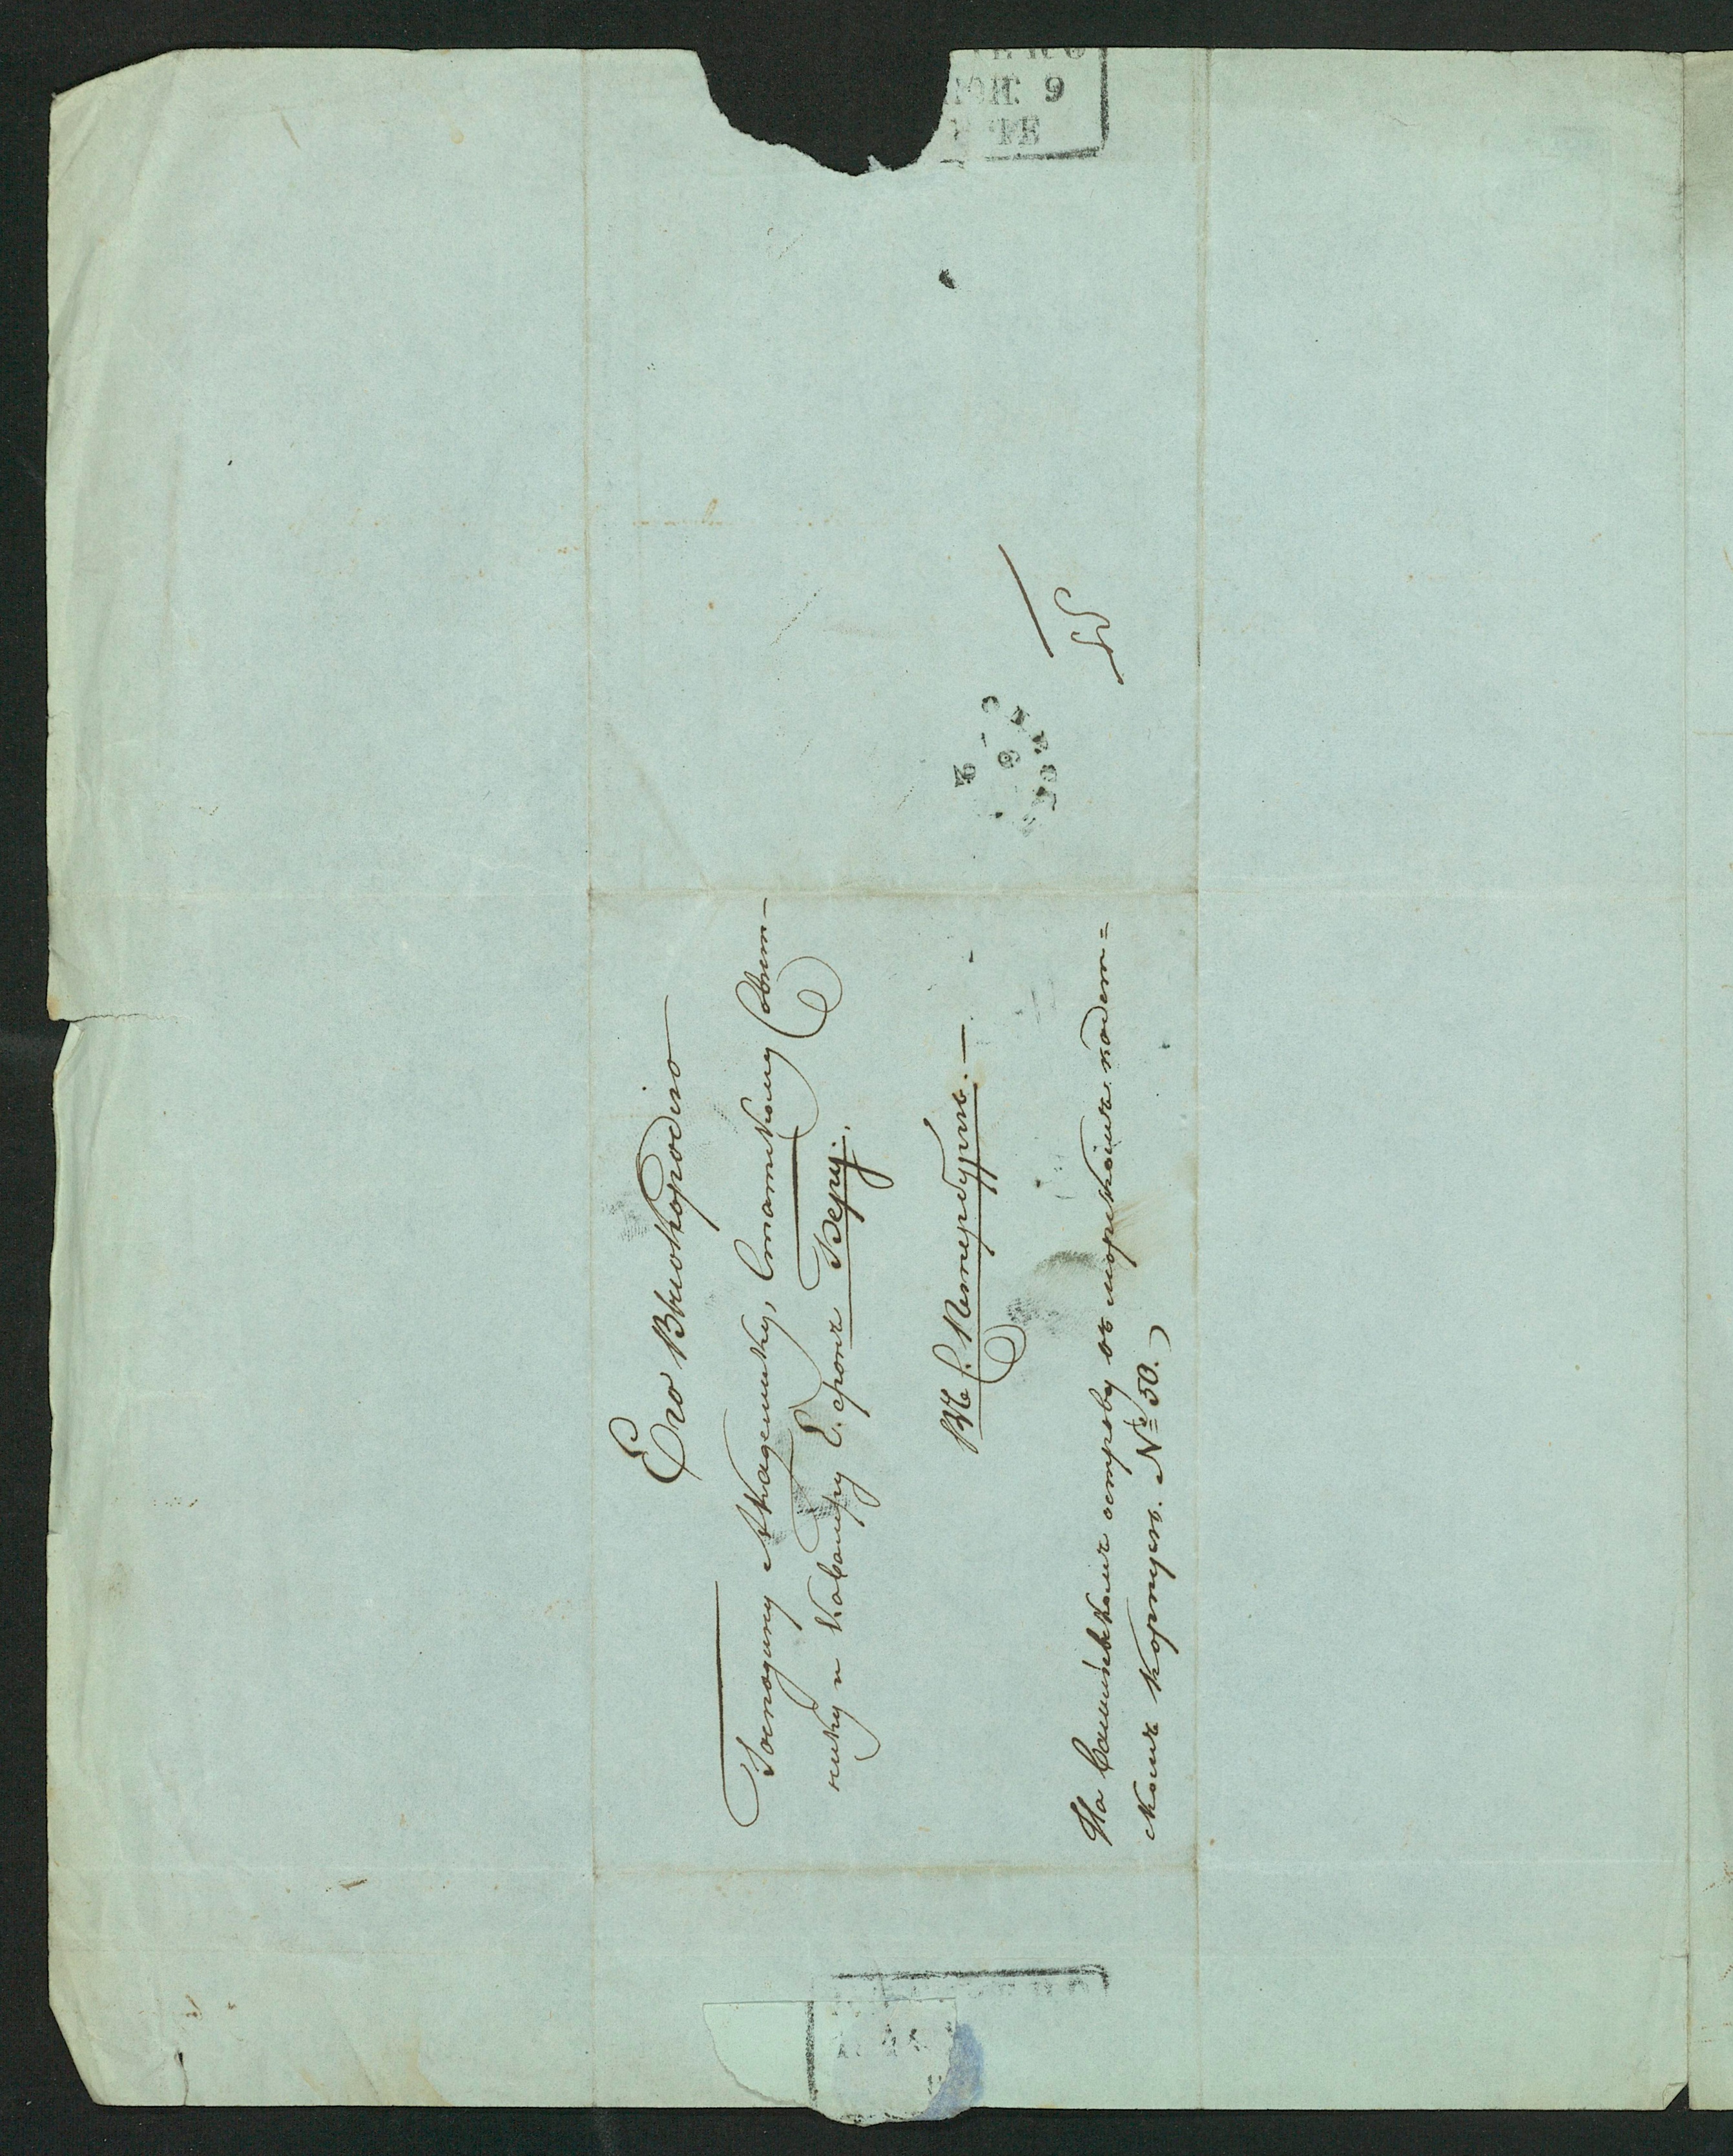 Его Высокородiю
Господину Академику, Статскому Совѣт-
нику и Кавалеру Е. фонъ Беру.
Въ С. Петербургъ.—
На Васильевскомъ острову въ морскомъ кадет=
скомъ корпусѣ. № 50.
ПОЛУЧЕНО
9